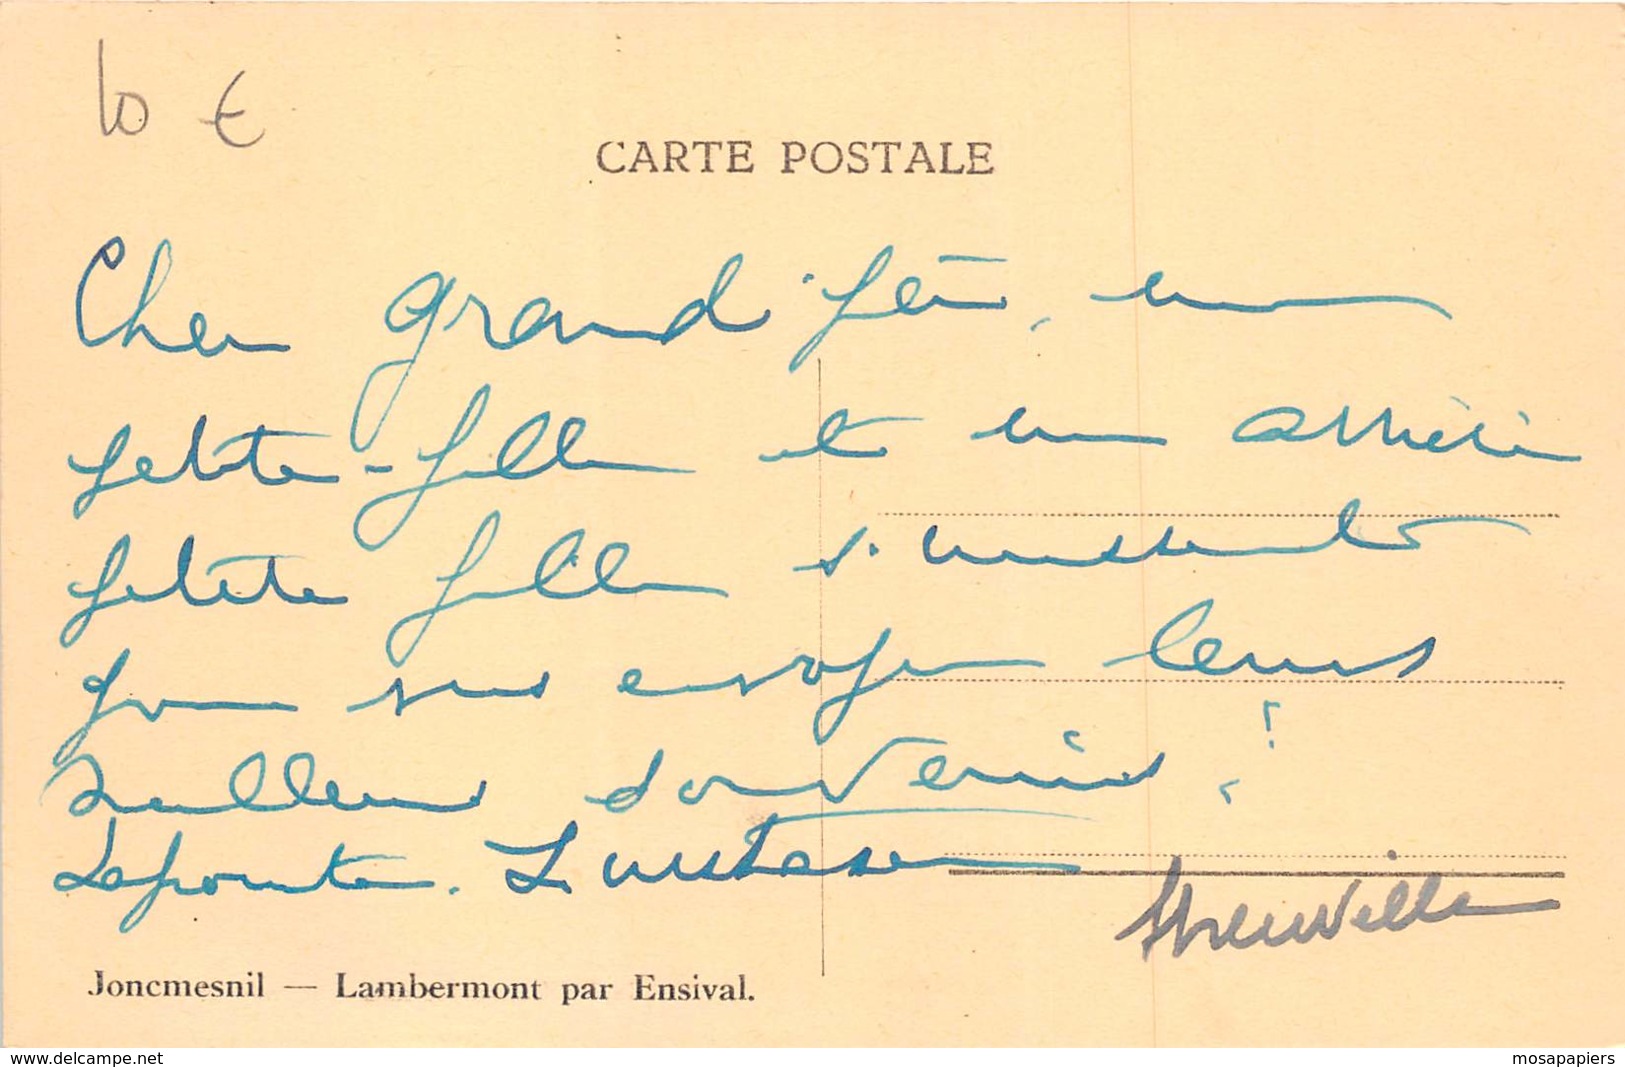 10 €
CARTE POSTALE
Cher grand-père, une
petite-fille et une arrière
petite fille s'unissent
pour vous envoyer leurs
meilleurs souvenirs!
Lapointe.
Joncmesnil — Lambermont par Ensival.
www.delcampe.net
mosapapiers